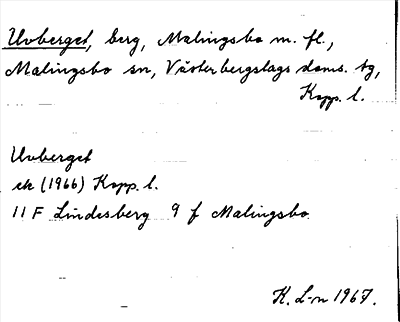 Uvberget, berg, Malingsbo m. fl.,
Malingsbo sn, Västerbergslags doms. tg,
Kopp. l.
Uvberget
ek (1966) Kopp. l.
11 F Lindesberg 9 f Malingsbo
K. L-n 1967.